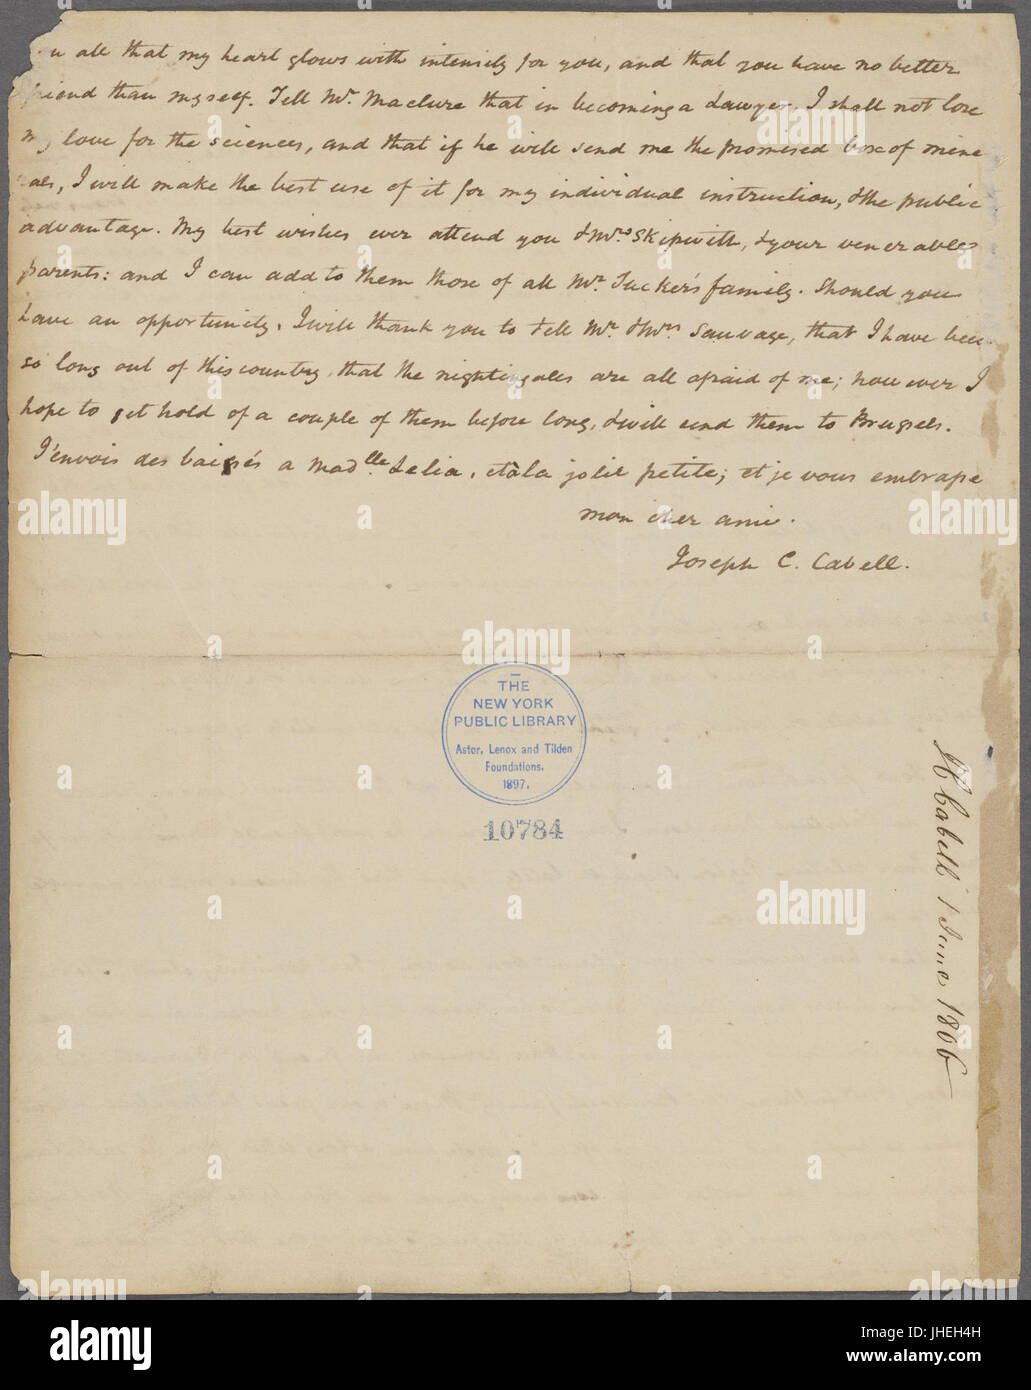 u all that my heart glows with intensity for you, and that you have no better
friend than myself. Tell Mr. Maclure that in becoming a Lawyer, I shall not lose
my love for the sciences, and that if he will send me the promised box of mine
rals, I will make the best use of it for my individual instruction, & the public
advantage. My best wishes ever attend you & Mrs Skipwith, & your venerable
parents: and I can add to them those of all Mr. Tucker's family. Should you
have an opportunity, I will thank you to tell Mr. & Mrs. Sauvage, that I have been
so long out of this country, that the nightingales are all afraid of me; however I
hope to get hold of a couple of them before long, & will send them to Brussels.
J'envois des baisés a Madlle. Lelia, et à la jolie petite; et je vous embrasse
mon cher ami.
Joseph C. Cabell.
THE
NEW YORK
PUBLIC LIBRARY
Astor, Lenox and Tilden
Foundations.
1897.
10784
Cabell 1 June 1806
alamy
alamy
alamy
alamy
alamy
alamy
a
a
a
a
a
a
alamy
Image ID: JHEH4H
www.alamy.com